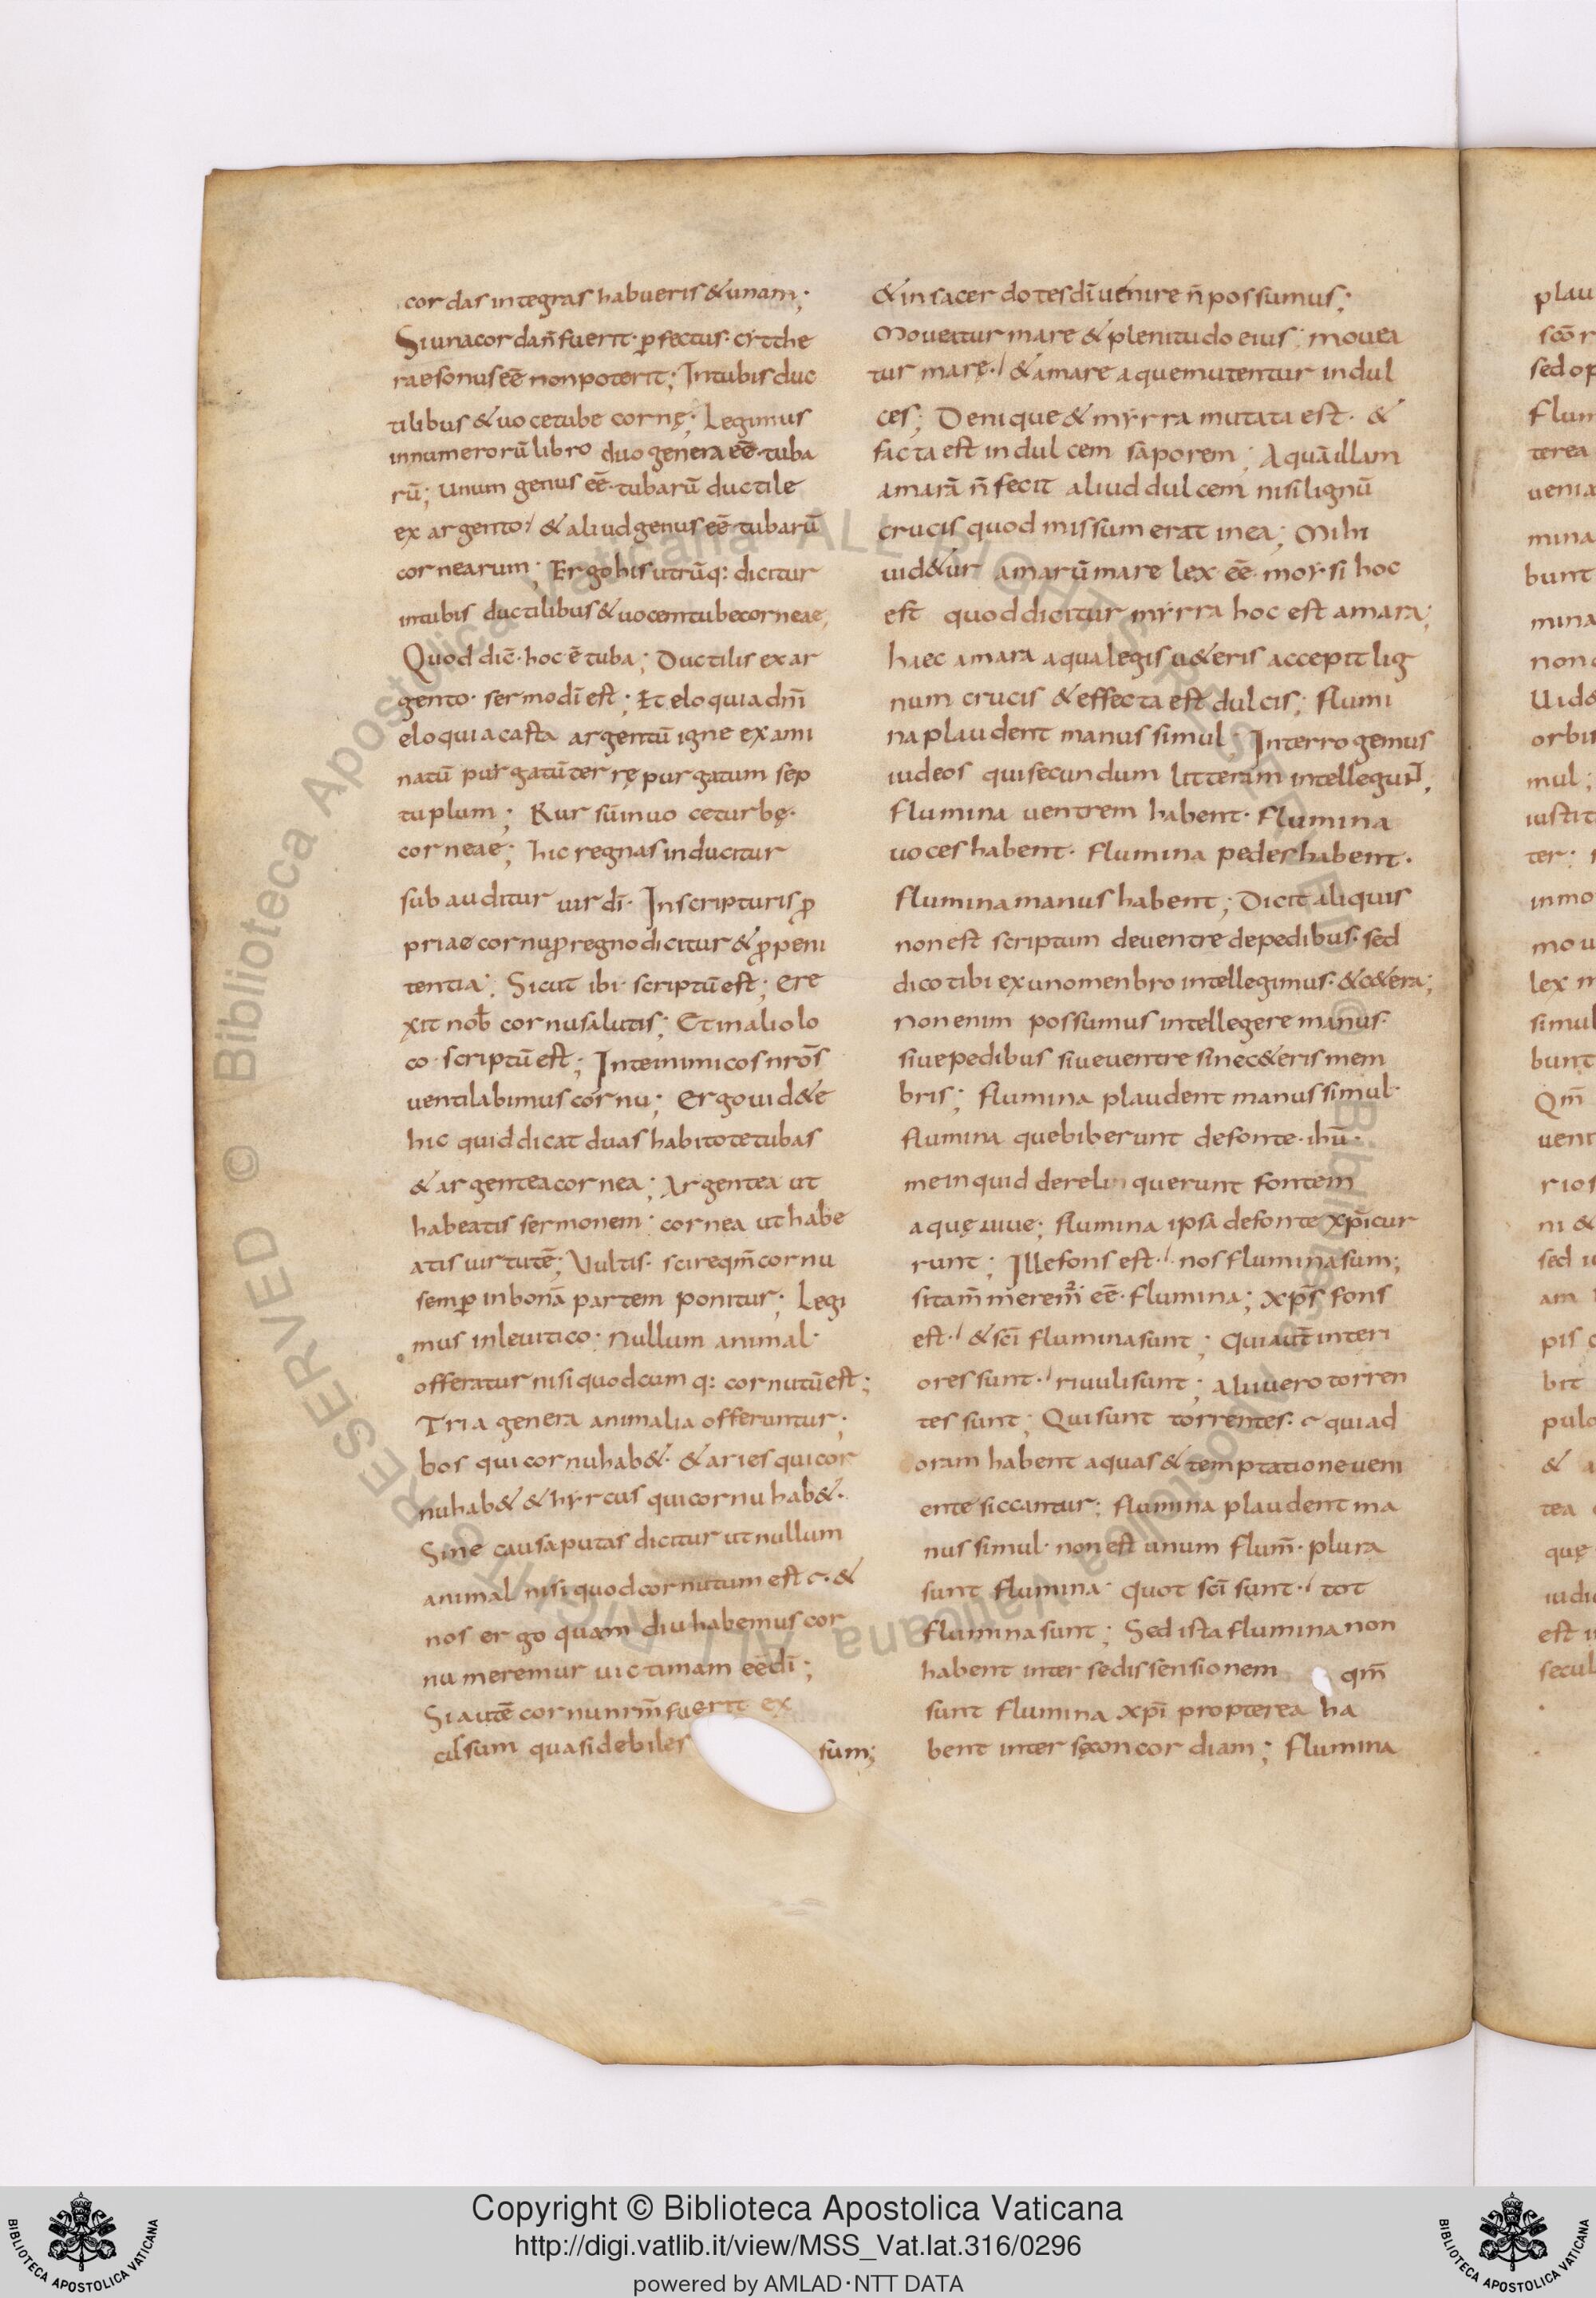 cordas integras habueris & unam;
Si una corda n̄ fuerit· ꝑfectus· cẏtthe
rae sonus eē̄ non poterit; In tubis duc
tilibus & uoce tube cornę; Legimus
in numerorū libro duo genera eē̄· tuba
rū; unum genus eē̄· tubarū ductile
ex argento / & aliud genus eē̄ tubarū
cornearum; Ergo his utrūq: dicitur
in tubis ductilibus & uocem tube corneae;
Quod dic̄· hoc ē tuba; Ductilis ex ar
gento· sermo dī est; Et eloquia dnī
eloquia casta argentū igne exami
natū purgatū terrę purgatum sep
tuplum; Rursū in uo ce turbę·
corneae; hic regnas inducitur
sub auditur uir dī· In scripturis ꝓ
priae cornu ꝓ regno dicitur & ꝓ peni
tentia; Sicut ibi scriptū est; ere
xit nob̄ cornu salutis; Et in alio lo
co scriptū est; In te inimicos nrōs
uentilabimus cornu; Ergo uid&e
hic quid dicat duas habitote tubas
& argentea cornea; Argentea ut
habeatis sermonem· cornea ut habe
atis uirtutē; Vultis· scire qm̄ cornu
semꝑ in bonā partem ponitur; Legi
mus in leuitico; Nullum animal·
offeratur nisi quodcumq: cornutū est;
Tria genera animalia offeruntur;
bos qui cornu hab&· & aries qui cor
nu hab& & hẏrcus qui cornu hab&·
Sine causa putas dicitur ut nullum
animal nisi quod cornutum est· &
nos ergo quam diu habemus cor
nu meremur uictimam eē dī;
Si autē cornu nrm̄ fuerit ex
cisum quasi debiles sum;
& in sacerdotes dī uenire n̄ possumus;
Moueatur mare & plenitudo eius; mouea
tur mare·/ & amare aque mutentur in dul
ces; Denique & mẏrra mutata est· &
facta est in dulcem saporem; Aquā illam
amarā n̄ fecit aliud dulcem nisi lignū
crucis quod missum erat in ea; Mihi
uid&ur amarū mare lex eē̄· moẏsi hoc
est quod dicitur mẏrra hoc est amara;
haec amara aqua legis u&eris accepit lig
num crucis & effecta est dulcis; flumi
na plaudent manus simul· Interrogemus
iudeos qui secundum litteram intellegunt;
flumina uentrem habent· flumina
uoces habent· flumina pedes habent·
flumina manus habent; Dicit aliquis
non est scriptum de uentre de pedibus· sed
dico tibi ex uno menbro intellegimus· & c&era;
Non enim possumus intellegere manus·
siue pedibus siue uentre sine c&eris mem
bris; flumina plaudent manus simul·
flumina que biberunt de fonte· ihū·
me inquid derelinquerunt fontem
aquę uiue; flumina ipsa de fonte xpī cur
runt; Ille fons est·/ nos flumina sum;
si tam̄ meremur eē̄· flumina; xps̄ fons
est·/ & scī flumina sunt; Qui aut̄ interi
ores sunt·/ riuuli sunt; alii uero torren
tes sunt; Qui sunt torrentes· qui ad
oram habent aquas & temptatione ueni
ente siccantur; flumina plaudent ma
nus simul· non est unum flum̄· plura
sunt flumina· quot scī sunt·/ tot
flumina sunt; Sed ista flumina non
habent inter se dissensionem qm̄
sunt flumina xpī propterea ha
bent inter se concordiam; flumina
plau
scō r
sed op
flum
terea
uenia
mina
bunt
mina
non
Uid&
orbis
mul;
iustit
ter;
in mo
mou
lex m
simul
bunt
Qm̄
uent
rios
ni &
sed
am
pis
bit
pulo
& a
tea
quę
iudic
est
secul
Copyright © Biblioteca Apostolica Vaticana
http://digi.vatlib.it/view/MSS_Vat.lat.316/0296
powered by AMLAD·NTT DATA
BIBLIOTECA APOSTOLICA VATICANA
BIBLIOTECA APOSTOLICA VATICANA